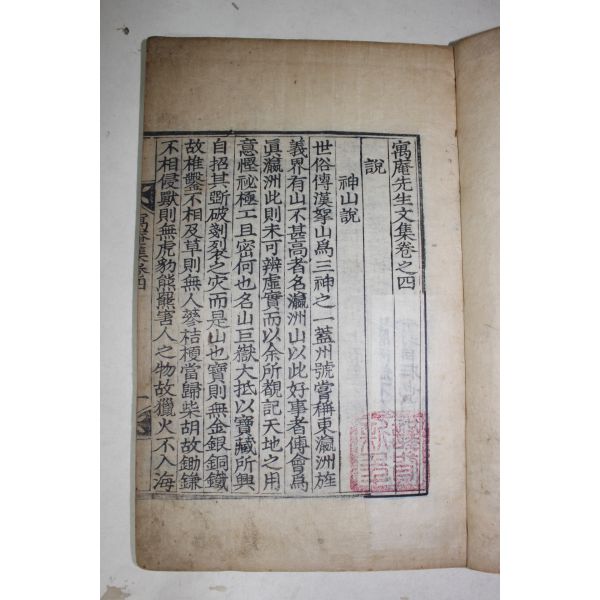 寓庵先生文集卷之四
說
神山說
世俗傳漢拏山爲三神之一蓋州號嘗稱東瀛洲旌
義界有山不甚高者名瀛洲山以此好事者傅會爲
眞瀛洲此則未可辨虛實而以余所覩記天地之用
意慳祕極工且密何也名山巨嶽大抵以寶藏所興
自招其斲破剗刓之灾而是山也寶則無金銀銅鐵
故椎鑿不相及草則無人蔘桔梗當歸柴胡故鋤鎌
不相侵獸則無虎豹熊羆害人之物故獵火不入海
寓庵集卷四